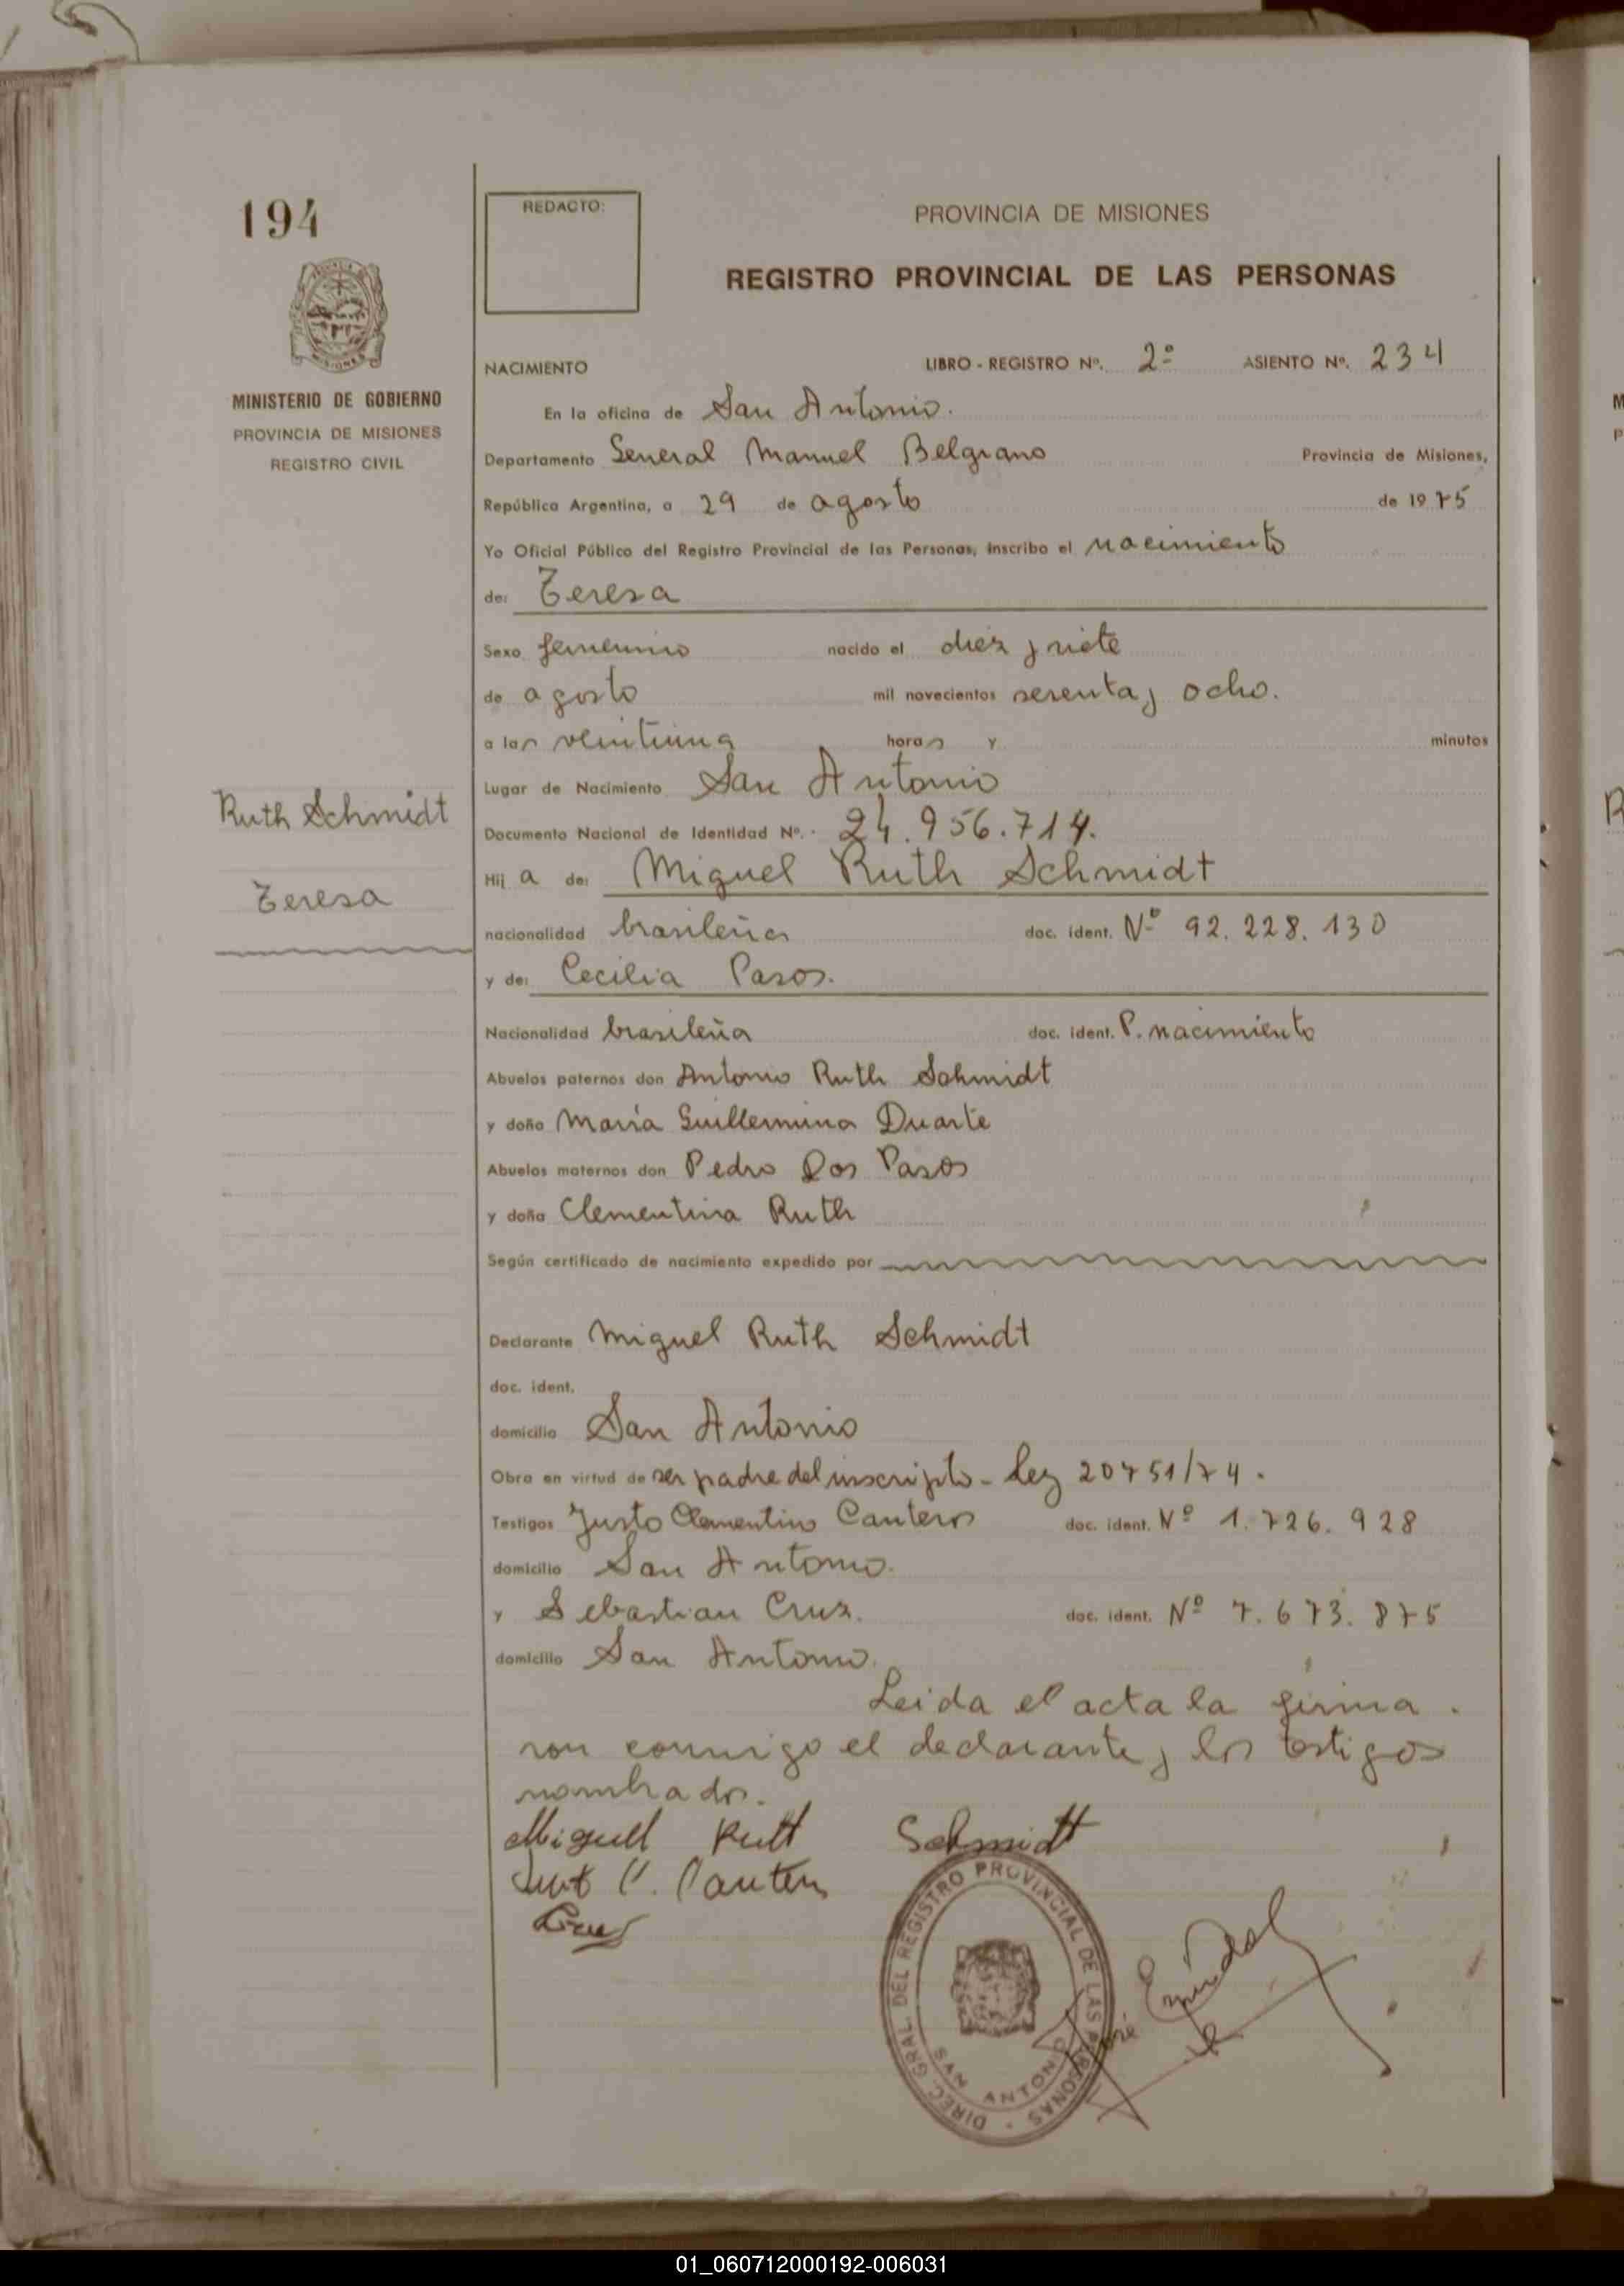 194
REDACTO:
PROVINCIA DE MISIONES
REGISTRO PROVINCIAL DE LAS PERSONAS
MINISTERIO DE GOBIERNO
PROVINCIA DE MISIONES
REGISTRO CIVIL
NACIMIENTO LIBRO - REGISTRO Nº. 2º ASIENTO Nº. 234
En la oficina de San Antonio.
Departamento General Manuel Belgrano Provincia de Misiones,
República Argentina, a 29 de agosto de 1975
Yo Oficial Público del Registro Provincial de las Personas, inscribo el nacimiento
de: Teresa
Sexo femenino nacido el diez y siete
de agosto mil novecientos sesenta y ocho.
a las veintiuna horas y minutos
Lugar de Nacimiento San Antonio
Ruth Schmidt
Teresa
Documento Nacional de Identidad Nº. 24.956.714.
Hij a de: Miguel Ruth Schmidt
nacionalidad brasileña doc. ident. Nº 92.228.130
y de: Cecilia Pasos.
Nacionalidad brasileña doc. ident. P. nacimiento
Abuelos paternos don Antonio Ruth Schmidt
y doña María Guillermina Duarte
Abuelos maternos don Pedro Dos Pasos
y doña Clementina Ruth
Según certificado de nacimiento expedido por
Declarante Miguel Ruth Schmidt
doc. ident.
domicilio San Antonio
Obra en virtud de ser padre del inscripto - Ley 20751/74.
Testigos Justo Clementino Cantero doc. ident. Nº 1.726.928
domicilio San Antonio.
y Sebastian Cruz. doc. ident. Nº 7.673.875
domicilio San Antonio.
Leida el acta la firma.
ron conmigo el declarante y los testigos
nombrados.
Miguel Rutt Schmidt
Just C. Canter
Cruz
DIREC. GRAL. DEL REGISTRO PROVINCIAL DE LAS PERSONAS
SAN ANTONIO
01_060712000192-006031